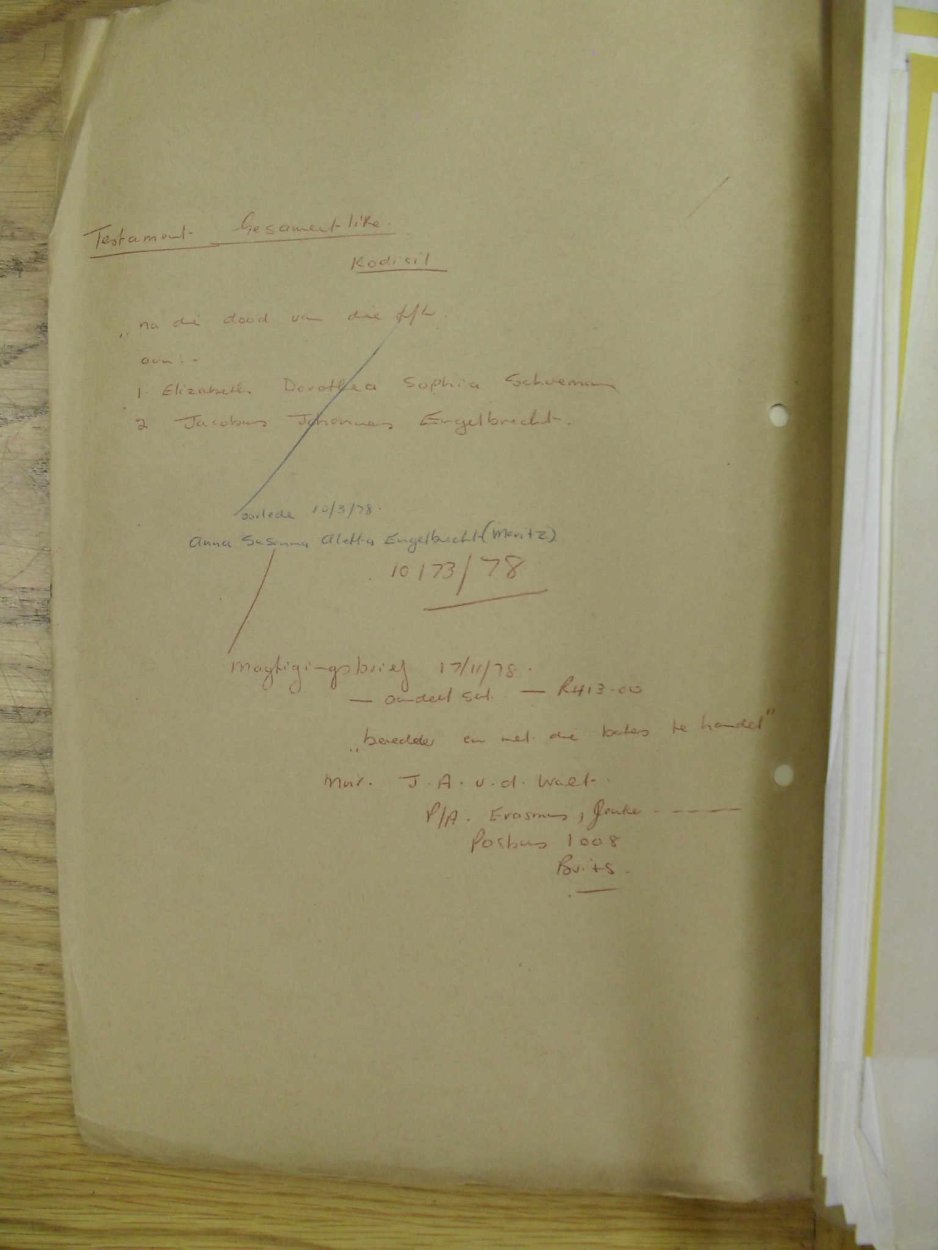 Testament Gesamentlike.
Kodisil
"na die dood van die
aan:-
1. Elizabeth Dorothea Sophia Schoeman
2 Jacobus Johannes Engelbrecht.
oorlede 10/3/78.
Anna Susanna Aletta Engelbrecht (Moritz)
10173/78
Magtigingsbrief 17/11/78.
— aandeel — R413-00
"beredder en met die bates te handel"
Mnr. J. A. v. d. Walt.
P/A. Erasmus,
Posbus 1008
Brits.